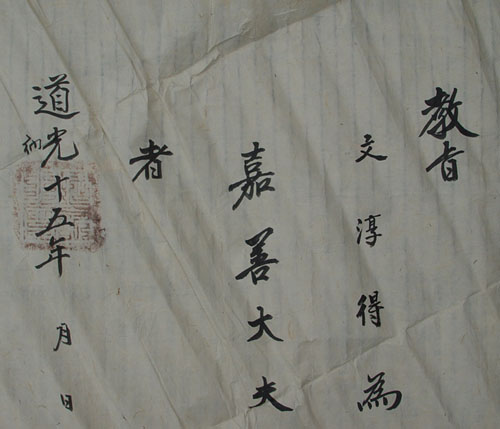 教旨
文淳得為
嘉善大夫
者
道光十五年 月 日